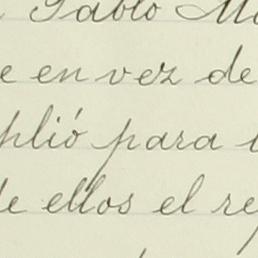 Pablo M
e en vez de
plió para
de ellos el re